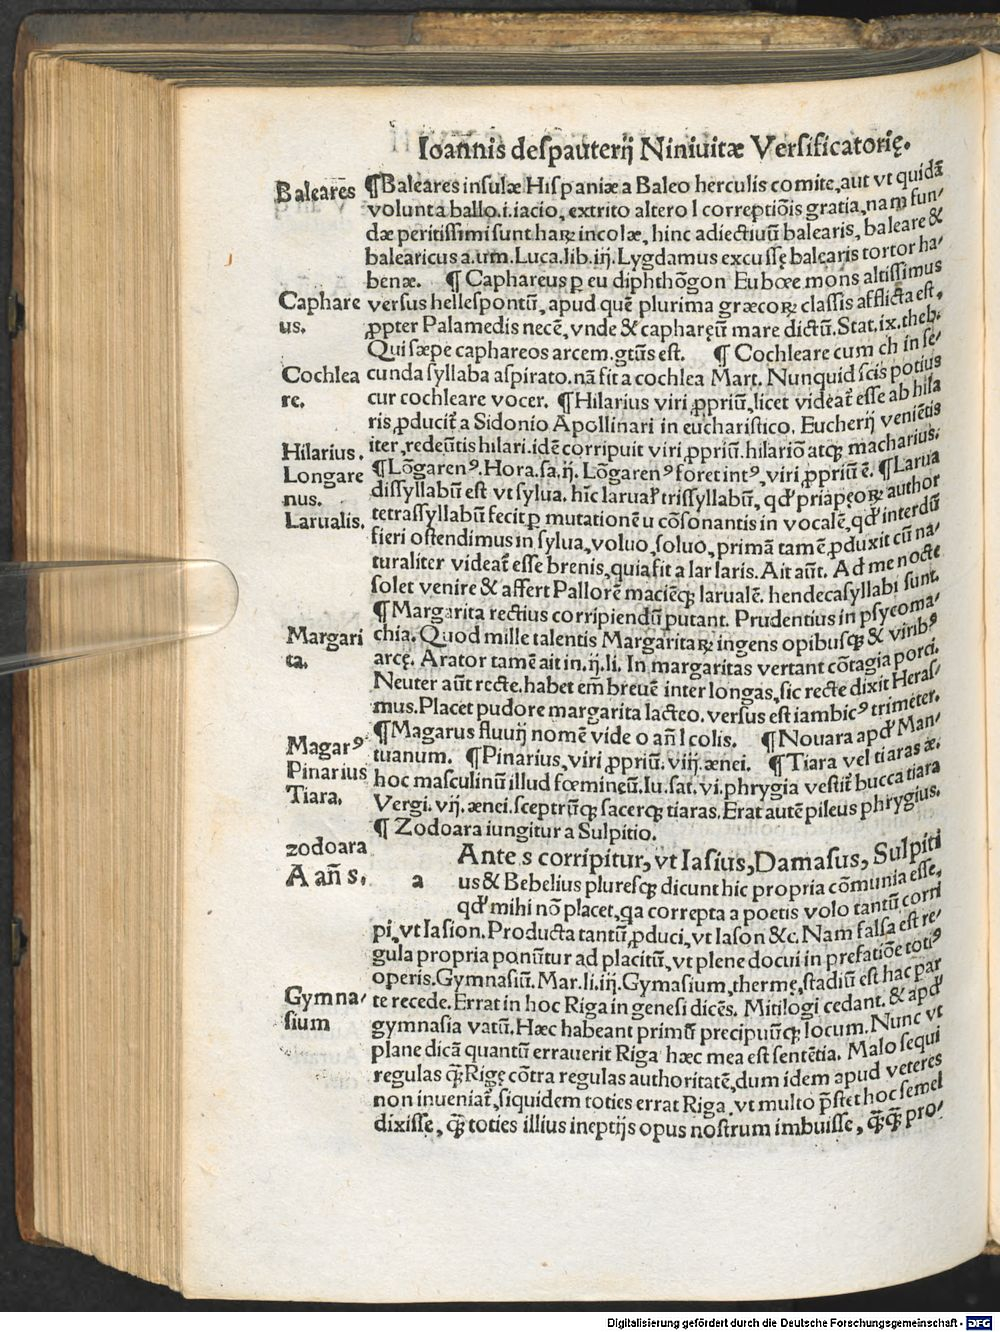 Ioannis despauterij Niniuitæ Versificatorię.
Baleares
¶Baleares insulæ Hispaniæ a Baleo herculis comite, aut vt quidã
volunt a ballo.i.iacio, extrito altero l correptiõis gratia, nam fun/
dæ peritissimi sunt haꝝ incolæ, hinc adiectiuũ balearis, baleare &
balearicus a.um. Luca.lib.iij. Lygdamus excussę balearis tortor ha/
benæ. ¶ Caphareus ꝑ eu diphthõgon Eubœe mons altissimus
Caphare
us.
versus hellespontũ, apud quẽ plurima græcoꝝ classis afflicta est,
ꝓpter Palamedis necẽ, vnde & caphareũ mare dictũ. Stat.ix.theb.
Qui sæpe caphareos arcem.gtũs est. ¶ Cochleare cum ch in se/
Cochlea
re.
cunda syllaba aspirato.nã fit a cochlea Mart. Nunquid scis potius
cur cochleare vocer. ¶Hilarius viri ꝓpriũ, licet videat᷑ esse ab hila
ris, ꝓducit᷑ a Sidonio Apollinari in eucharistico. Eucherij veniẽtis
Hilarius.
iter, redeũtis hilari.idẽ corripuit viri ꝓpriũ.hilariõ atqꝫ macharius.
Longare
nus.
¶Lõgarenꝰ.Hora.sa.ij. Lõgarenꝰ foret intꝰ, viri ꝓpriũ ẽ. ¶Larua
dissyllabũ est vt sylua. hĩc laruaľ trissyllabũ, qđ priapęoꝝ author
Larualis.
tetrassyllabũ fecit ꝑ mutationẽ u cõsonantis in vocalẽ, qđ interdũ
fieri ostendimus in sylua, voluo, soluo, primã tamẽ ꝓduxit cũ na/
turaliter videat᷑ esse brenis, quia fit a lar laris. Ait aũt. Ad me nocte
solet venire & affert Pallorẽ maciẽqꝫ larualẽ. hendecasyllabi sunt.
¶Margarita rectius corripiendũ putant. Prudentius in psycoma/
Margari
ta.
chia. Quod mille talentis Margaritaꝝ ingens opibusqꝫ & viribꝰ
arcę. Arator tamẽ ait in.ij.li. In margaritas vertant cõtagia porci.
Neuter aũt recte.habet em̃ breuẽ inter longas, sic recte dixit Heras/
mus. Placet pudore margarita lacteo. versus est iambicꝰ trimeter.
Magarꝰ
¶Magarus fluuij nomẽ vide o añ l colis. ¶Nouara apđ Man/
Pinarius
tuanum. ¶Pinarius, viri ꝓpriũ. viij. ænei. ¶Tiara vel tiaras æ.
Tiara.
hoc masculinũ illud fœmineũ. Iu.sat.vi.phrygia vestit᷑ bucca tiara
Vergi.vij.ænei.sceptrũqꝫ sacerqꝫ tiaras. Erat autẽ pileus phrygius.
zodoara
¶ Zodoara iungitur a Sulpitio.
A añ s.
a Ante s corripitur, vt Iasius, Damasus, Sulpiti
us & Bebelius pluresqꝫ dicunt hic propria cõmunia esse,
qđ mihi nõ placet, qa correpta a poetis volo tantũ corri
pi, vt Iasion. Producta tantũ ꝓduci, vt Iason &c. Nam falsa est re/
gula propria ponũtur ad placitũ, vt plene docui in prefatiõe totiꝰ
Gymna/
sium
operis. Gymnasiũ. Mar.li.iij. Gymasium, thermę, stadiũ est hac par
te recede. Errat in hoc Riga in genesi dicẽs. Mitilogi cedant. & apđ
gymnasia vatũ. Hæc habeant primũ precipuũqꝫ locum. Nunc vt
plane dicã quantũ errauerit Riga hæc mea est sentẽtia. Malo sequi
regulas q̃ꝫ Rigę cõtra regulas authoritatẽ, dum idem apud veteres
non inueniat᷑, siquidem toties errat Riga, vt multo p̃stet hoc semel
dixisse, q̃ꝫ toties illius ineptijs opus nostrum imbuisse, q̃ꝫq̃ꝫ pro/
Digitalisierung gefördert durch die Deutsche Forschungsgemeinschaft - DFG